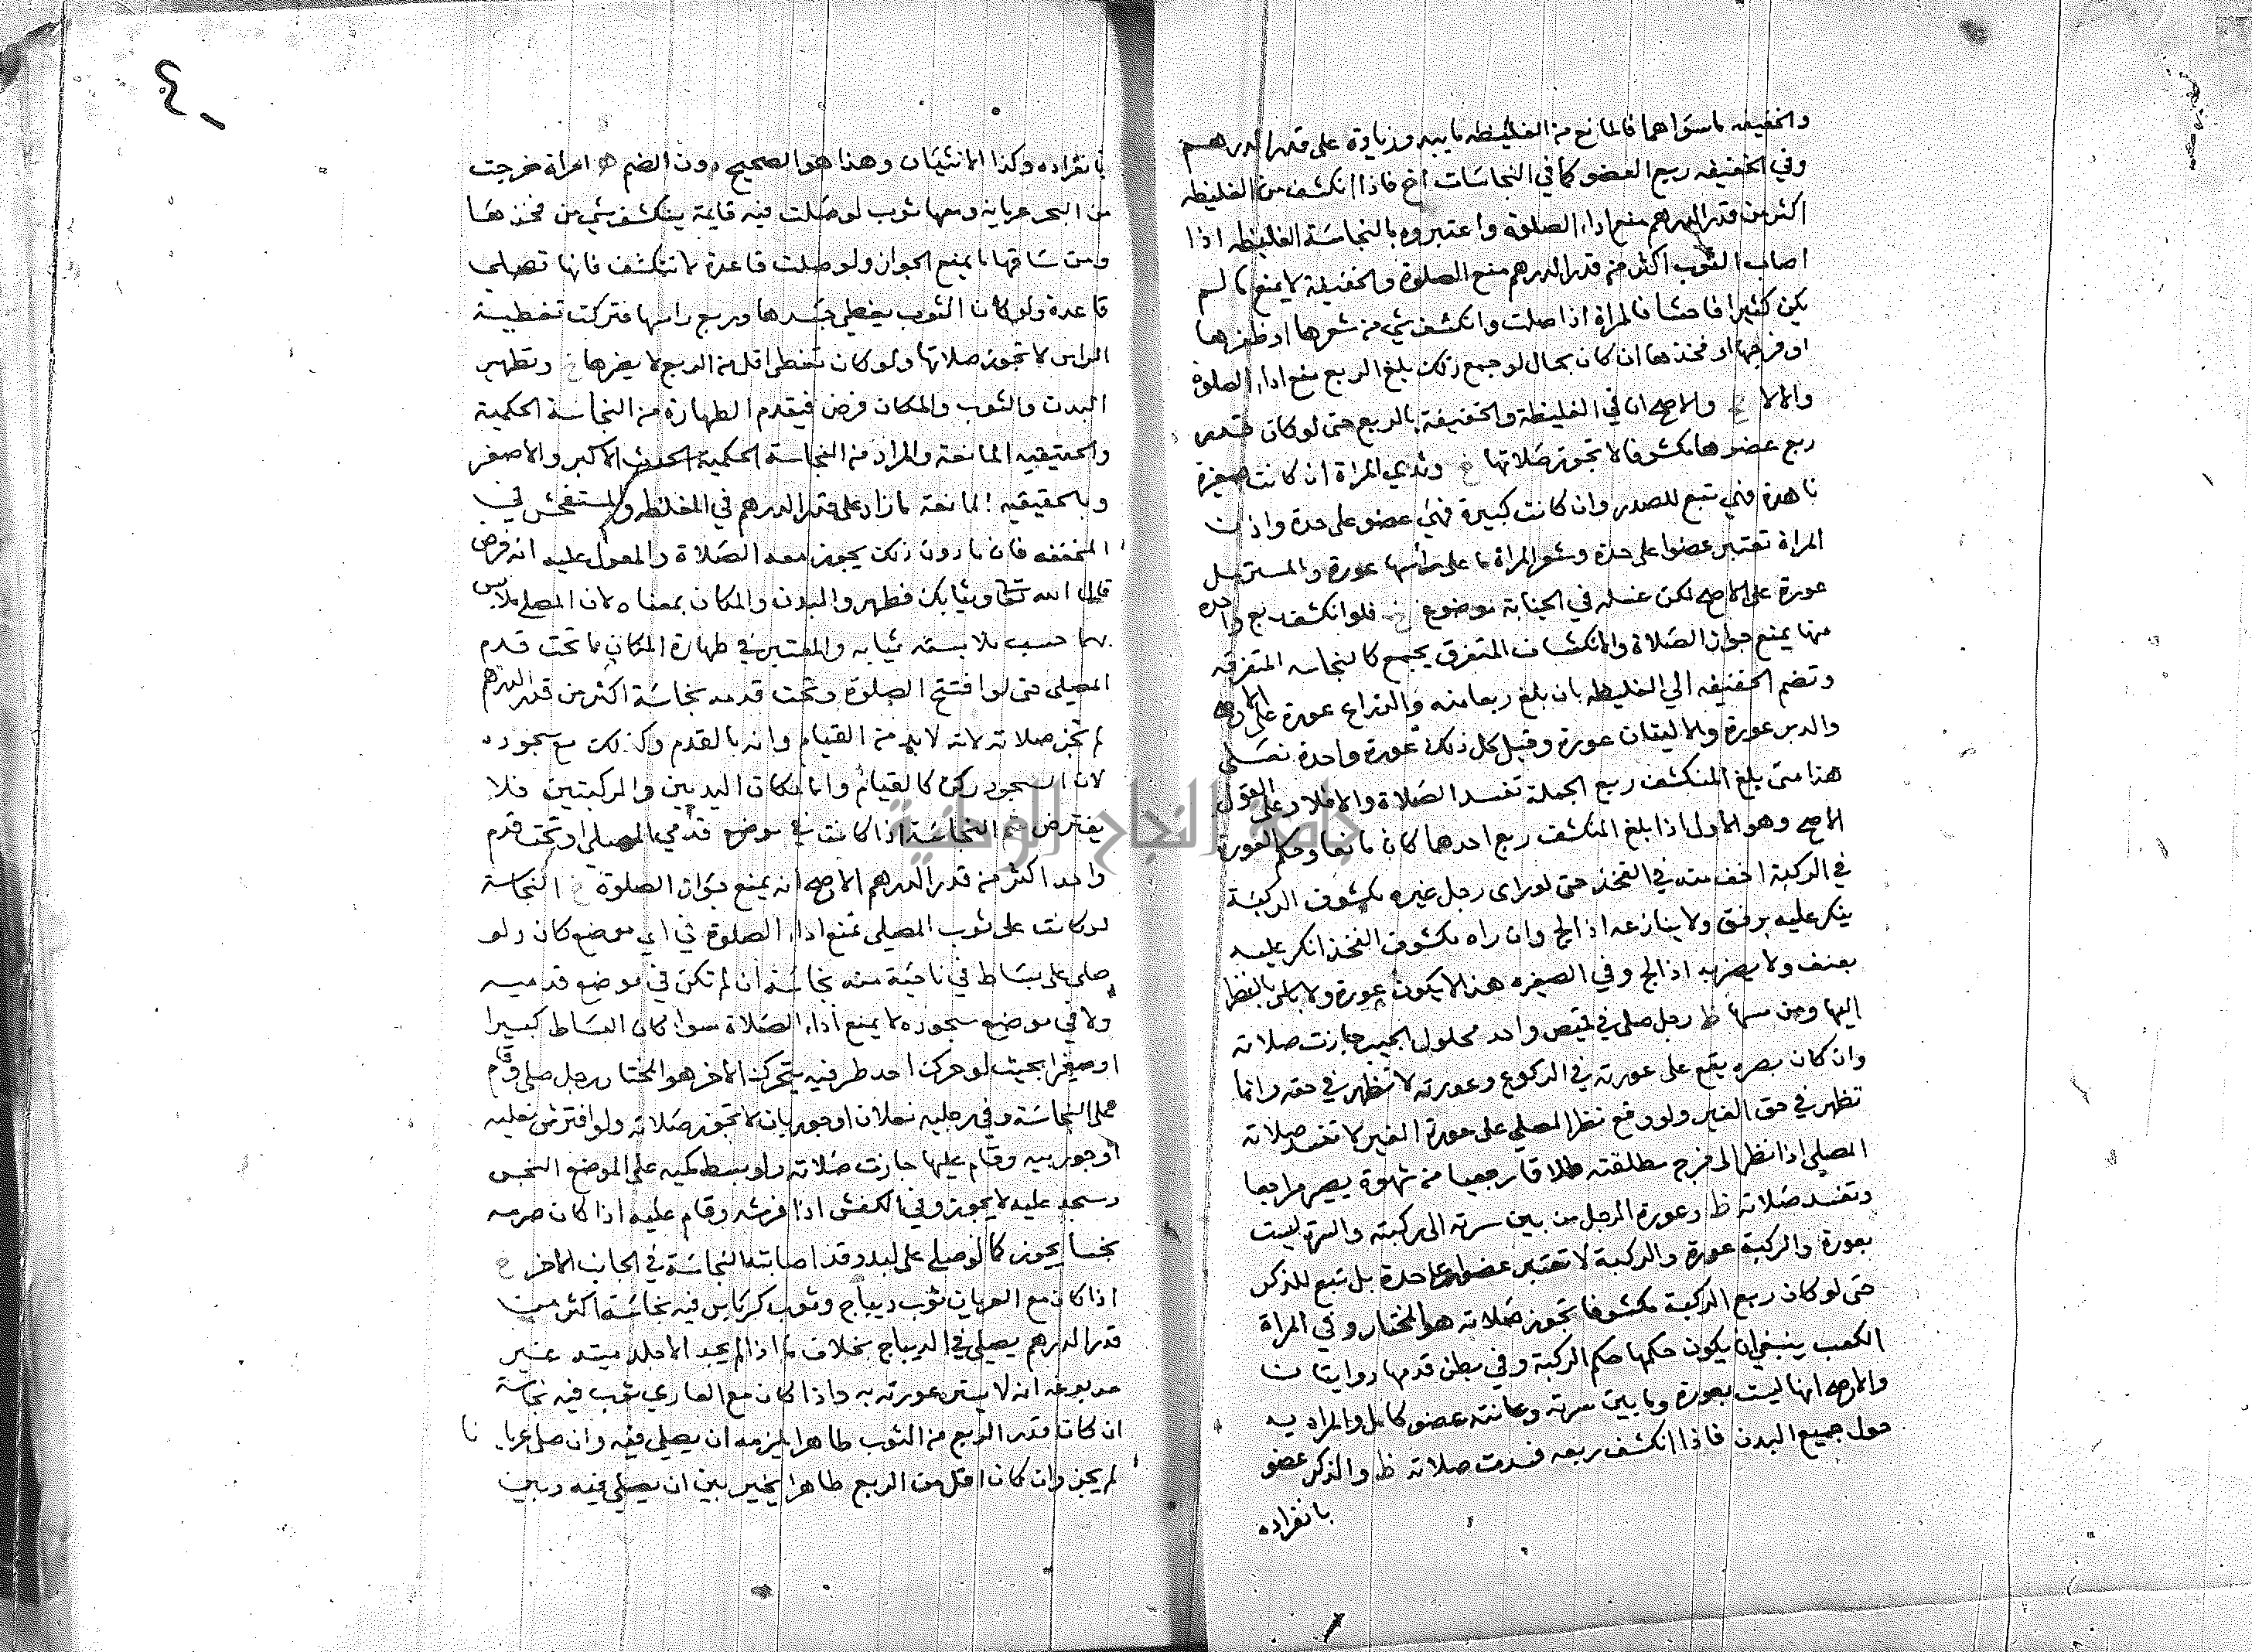 والخفيفه ماسواهما فالمانع من الغليظه مايبدو زيادة على قدر الدرهم
وفي الخفيفه ربع العضو كما في النجاسات اخ فاذا انكشف من الغليظه
اكثر من قدر الدرهم منع اداء الصلوة واعتبروه بالنجاسة الغليظه اذا
اصاب الثوب اكثر من قدر الدرهم منع الصلوة والخفيفة لا يمنع ما لم
يكن كثيرا فاحشا فالمراة اذا صلت وانكشف شي من شعرها او ظفرها
او فرجها او فخذها ان كان بحال لو جمع ذلك بلغ الربع منع اداء الصلوة
والالا خ والاصح ان في الغليظة والخفيفة بالربع حتى لو كان قدر
ربع عضوها مكشوفا لا تجوز صلاتها خ وثدي المراة ان كانت صغيرة
ناهدة فهي تبع للصدر وان كانت كبيرة فهي عضو على حدة واذن
المراة تعتبر عضوا على حدة وشعر المراة ما على رأسها عورة والمسترسل
عورة على الاصح لكن غسله في الجنابة موضوع خ فلو انكشف ربع واحده
منها يمنع جواز الصلاة والانكشاف المتفرق يجمع كالنجاسه المتفرقه
وتضم الخفيفه الي الغليظه بان بلغ ربعا منه والذراع عورة على الاصح
والدبر عورة والاليتان عورة وقيل كل ذلك عورة واحدة فعلى
هذا متى بلغ المنكشف ربع الجملة تفسد الصلاة والا فلا وعلى القول
الاصح وهو الاول اذا بلغ المنكشف ربع احدهما كان مانعا وحكم العورة
في الركبة اخف منه في الفخذ حتى لو راى رجل غيره مكشوف الركبة
ينكر عليه برفق ولا ينازعه اذا لج وان راه مكشوف الفخذ انكر عليه
بعنف ولا يضربه اذا لج وفي الصغيره هذا لا يكون عورة ولا باس بالنظر
اليها ومن مسها ظ رجل صلى في قميص واحد محلول الجيب جازت صلاته
وان كان بصره يقع على عورته في الركوع وعورته لا تظهر في حقه وانما
تظهر في حق الغير ولو وقع نظر المصلي على عورة الغير لا تفسد صلاته
المصلي اذا نظر الى فرج مطلقته طلاقا رجعيا من شهوة يصير مراجعا
وتفسد صلاته ظ وعورة الرجل من بين سرته الى ركبته والسرة ليست
بعورة والركبة عورة والركبة لا تعتبر عضوا على حدة بل تبع للذكر
حتى لو كان ربع الركبة مكشوفا تجوز صلاته هو المختار وفي المراة
الكعب ينبغي ان يكون حكمها حكم الركبة وفي بطن قدمها روايتان
والاصح انها ليست بعورة وما بين سرته وعانته عضو كامل والمراد به
حول جميع البدن فاذا انكشف ربعه فسدت صلاته ظ والذكر عضو
بانفراده
بانفراده وكذا الانثيان وهذا هو الصحيح دون الضم ه امراة خرجت
من البحر عريانه ومعها ثوب لو صلت فيه قايمة ينكشف شي من فخذها
ومن ساقها ما يمنع الجواز ولو صلت قاعدة لا تنكشف فانها تصلي
قاعدة ولو كان الثوب يغطي جسدها وربع راسها فتركت تغطية
الراس لا تجوز صلاتها ولو كان تغطى اقل من الربع لا يضرها خ وتطهير
البدن والثوب والمكان فرض فيقدم الطهارة من النجاسة الحكمية
والحقيقيه المانعة والمراد من النجاسة الحكمية الحدث الاكبر والاصغر
وبالحقيقيه المانعة مازاد على قدر الدرهم في المغلظه والمستفحش في
المخففه فان مادون ذلك يجوز معه الصلاة والمعول عليه انه فرض
قال الله تعا وثيابك فطهر والبدن والمكان بمعناه لان المصلي ملابس
بهما حسب ملابسته ثيابه والمعتبر في طهارة المكان ما تحت قدم
المصلي حتى لو افتتح الصلوة وتحت قدمه نجاسة اكثر من قدر الدرهم
لم تجز صلاته لانه لابد من القيام وانه بالقدم وكذلك مع سجوده
لان السجود ركن كالقيام واما مكان اليدين والركبتين فلا
يفترض ثم النجاسة اذا كانت في موضع قدمي المصلي او تحت قدم
واحد اكثر من قدر الدرهم الاصح انه يمنع جواز الصلوة خ النجاسة
لو كانت على ثوب المصلي تمنع اداء الصلوة في اي موضع كان ولو
صلى على بساط في ناحية منه نجاسة ان لم تكن في موضع قدميه
ولا في موضع سجوده لا يمنع اداء الصلاة سوا كان البساط كبيرا
او صغيرا بحيث لو حرك احد طرفيه يتحرك الاخر هو المختار رجل صلى وقام
على النجاسة وفي رجليه نعلان او جوربان لا تجوز صلاته ولو افترش نعليه
او جوربيه وقام عليها جازت صلاته ولو بسط كميه على الموضع النجس
وسجد عليه لا يجوز وفي الكفش اذا فرشه وقام عليه اذا كان صرمه
نجسا يجوز كالو صلى على لبد وقد اصابته النجاسة في الجانب الاخر خ
اذا كان مع العريان ثوب ديباج وثوب كرباس فيه نجاسة اكثر من
قدر الدرهم يصلي في الديباج بخلاف ما اذا لم يجد الا جلد ميتة غير
مدبوغه انه لا يستر عورته به واذا كان مع العاري ثوب فيه نجاسة
ان كان قدر الربع من الثوب طاهرا يلزمه ان يصلي فيه وان صلى عريانا
لم يجز وان كان اقل من الربع طاهرا يخير بين ان يصلي فيه وبين
جامعة النجاح الوطنية